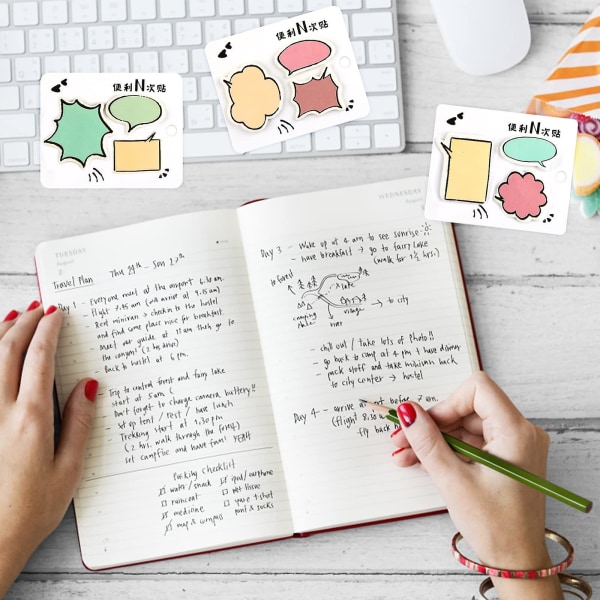 便利N次贴
便利N次贴
便利N次贴
TUESDAY
August
Travel Plan
Day 1 - Everyone meet at the airport 6.30 am
- flight 7.45 am (will arrive at 9.15 am)
- Rent minivan → check in to the hostel
and find some place nice for breakfast.
- Meet our guide at 11 am then go to
the canyon! (2 hrs drive)
- Back to hostel at 6 pm.
- Trip to central forest and fairy lake
start at 5 am
Don't forget to charge camera battery!!
- Set up tent / rest / have lunch
- Trekking start at 1.30 pm
(2 hrs. walk through the forest)
set campfire and have fun! YEAH
Packing checklist
water/snack
raincoat
medicine
map & compass
ipod/earphone
wet tissue
spare t-shirt
pant & socks
WEDNESDAY
August
Day 3 - Wake up at 4 am to see sunrise
- have breakfast → go to fairy lake
(walk for 1½ hrs.)
to forest
lake
camping
river
village
→ to city
- chill out / take lots of photo!!
- go back to camp at 4 pm + have dinner
- pack stuff and take minivan back
to city center → hostel
Day 4 - arrive at before 7 am.
(flight 8:30
fly back